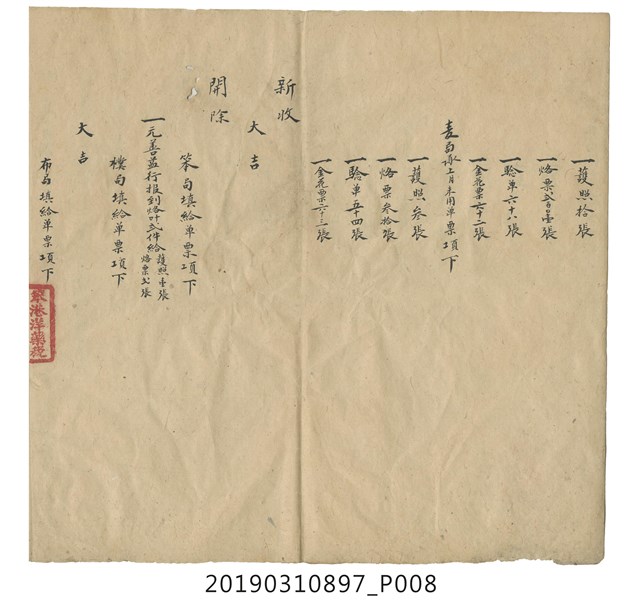 一護照拾張
一烙票弍百壹張
一驗单六十八張
一金花票六十二張
麦局承上月未用单票項下
一護照叁張
一烙票叁拾張
一驗单五十四張
一金花票六十三張
新收
大吉
開除
笨局填給单票項下
一元善益行报到烙叶弍件給護照壹張烙票弍張
大吉
樸局填給单票項下
大吉
布局填給单票項下
港洋藥稅
20190310897_P008